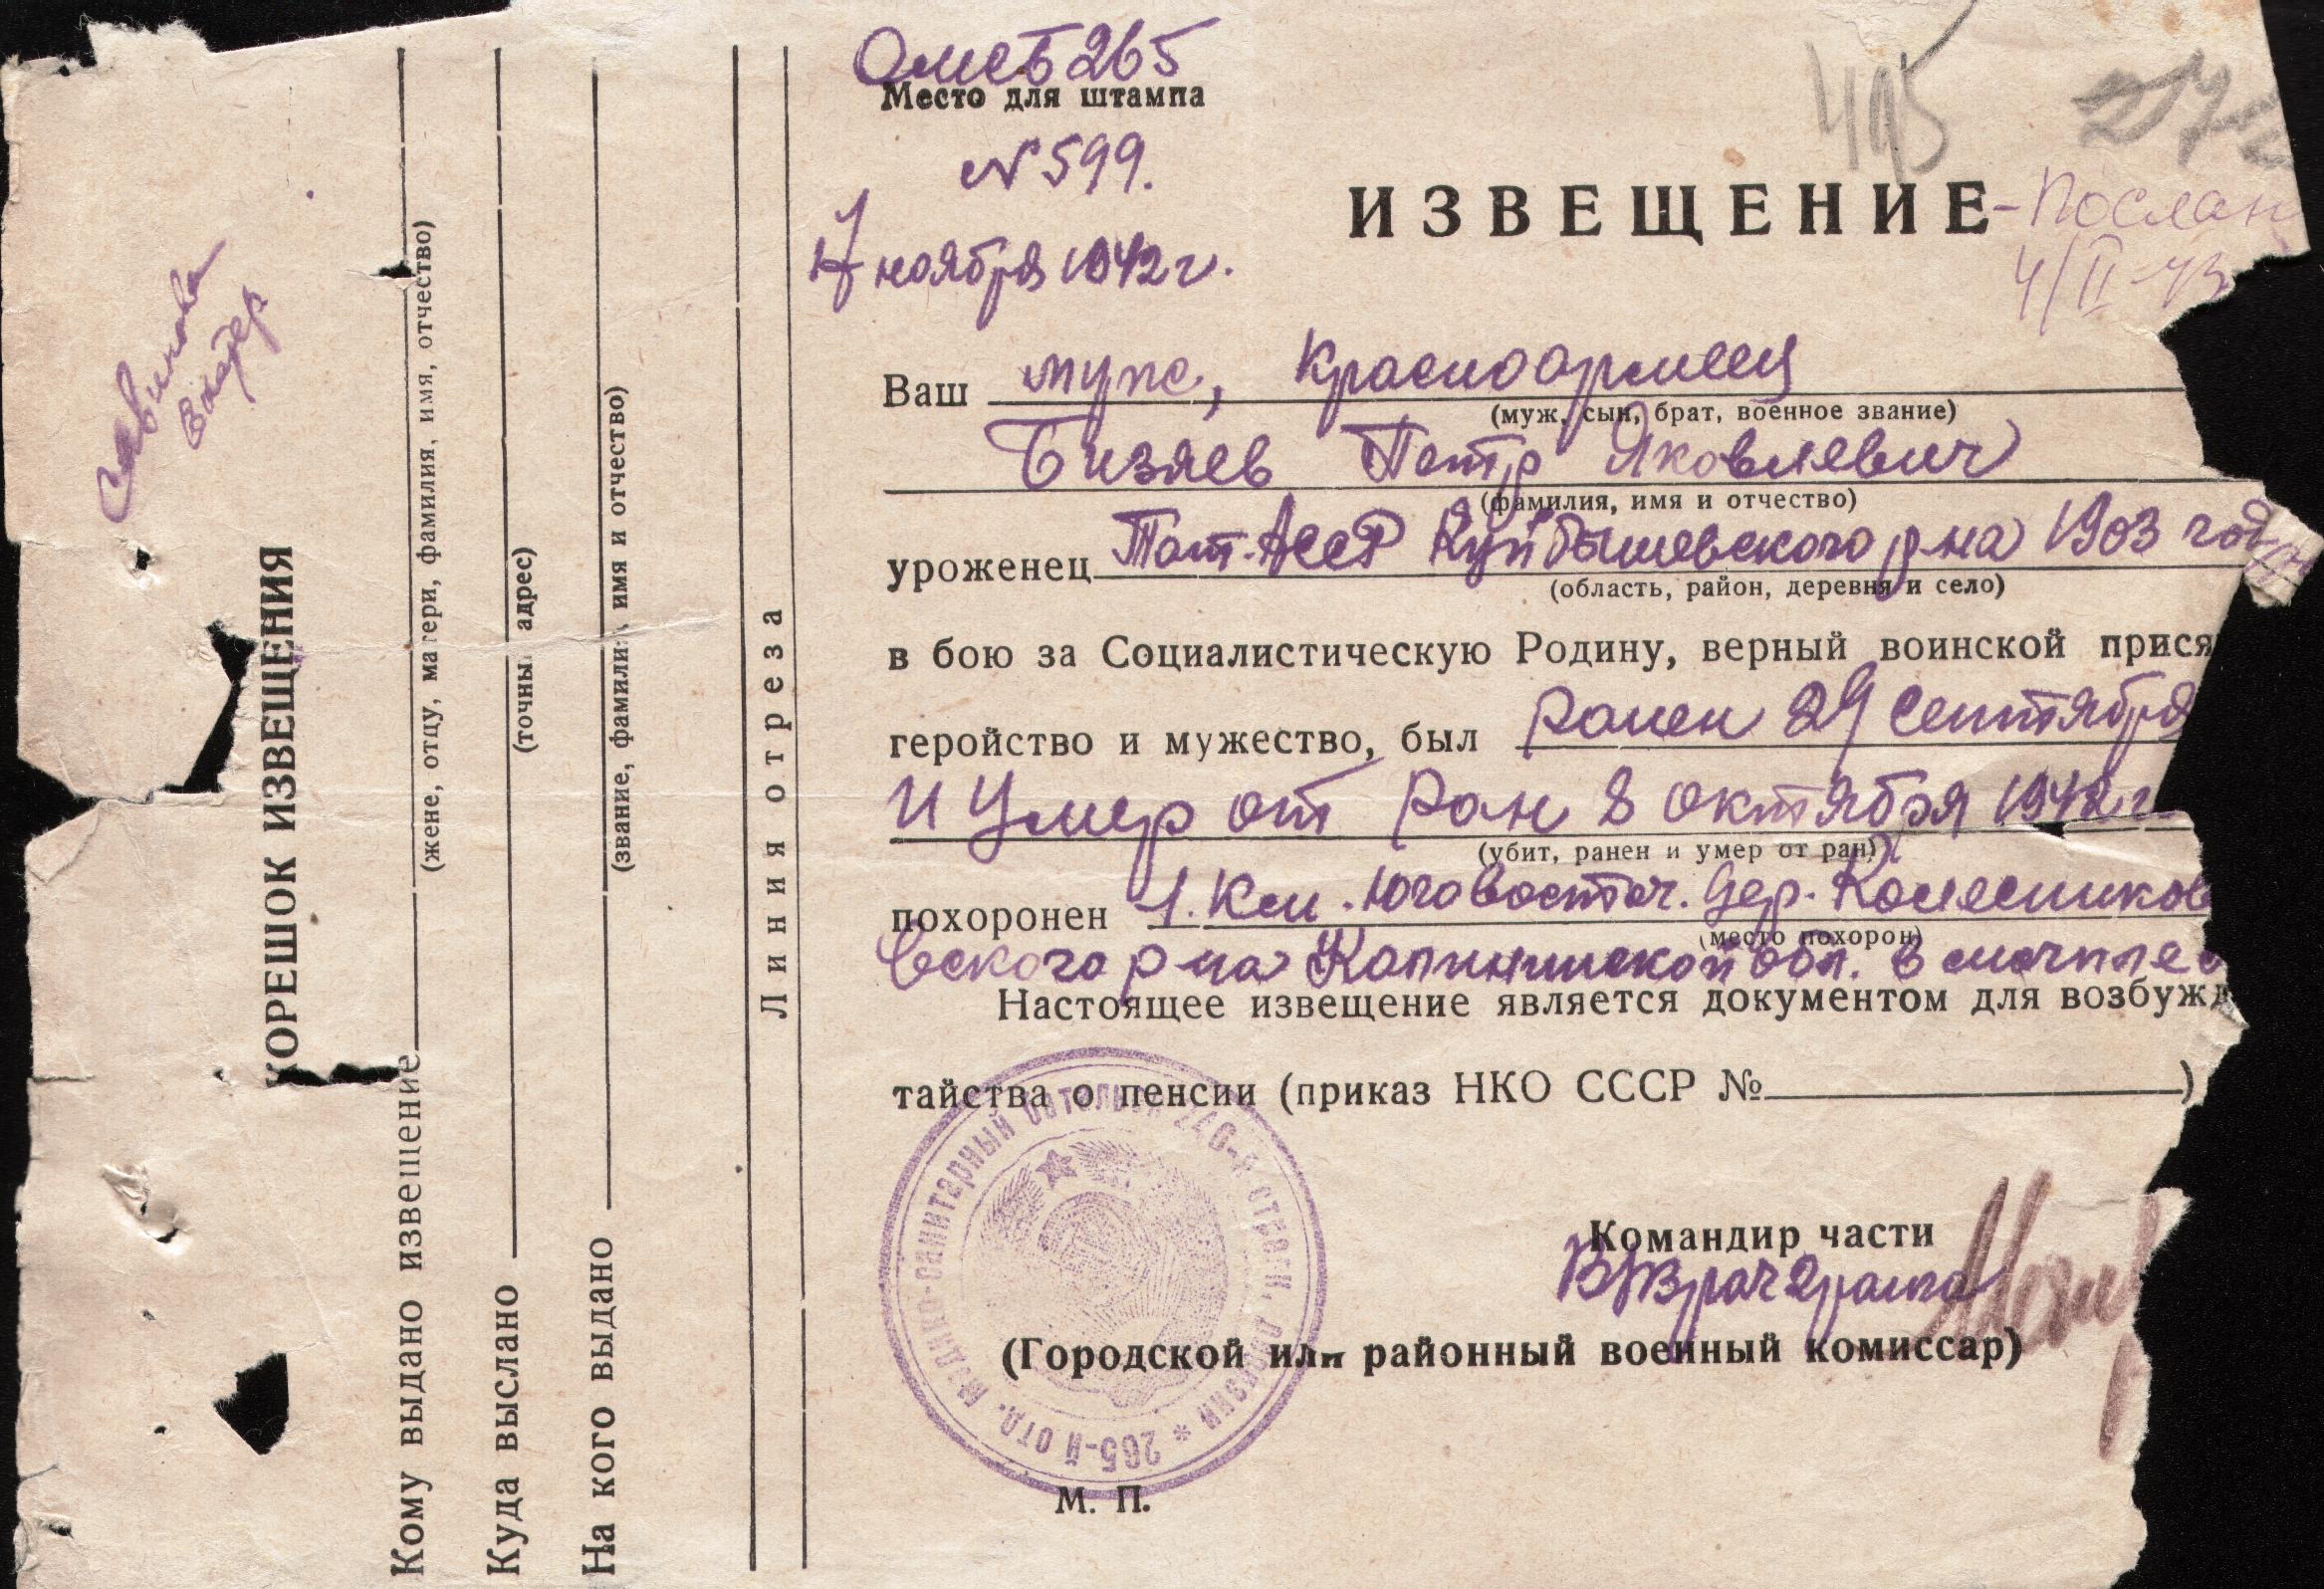 Омсб 265
Место для штампа
N 599.
495
17 ноября 1942 г.
ИЗВЕЩЕНИЕ - Послан
4/II-43
Ваш муж, Красноармеец
(муж, сын, брат, военное звание)
Бизяев Петр Яковлевич
(фамилия, имя и отчество)
уроженец Тат. АССР Куйбышевского р-на 1903 год
(область, район, деревня и село)
в бою за Социалистическую Родину, верный воинской прися
геройство и мужество, был ранен 29 сентября
и умер от ран 8 октября 1942 г
(убит, ранен и умер от ран)
похоронен 1. км. юговосточ. дер. Колесников
(место похорон)
вского р-на Калининской обл.
Настоящее извещение является документом для возбужд
тайства о пенсии (приказ НКО СССР № )
Командир части
В/Врач 2 ранга
(Городской или районный военный комиссар)
М. П.
265-й отд. медико-санитарный батальон 246-й стрелк. дивизии *
Линия отреза
КОРЕШОК ИЗВЕЩЕНИЯ
Кому выдано извещение
(жене, отцу, матери, фамилия, имя, отчество)
Куда выслано
(точный адрес)
На кого выдано
(звание, фамилия, имя и отчество)